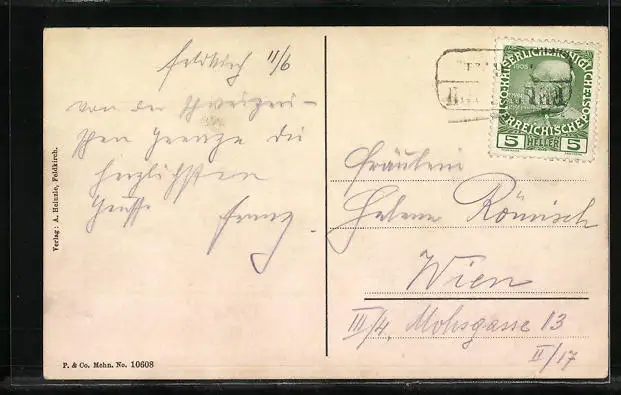 Feldkirch 11/6
von der Schweizeri-
schen Grenze die
herzlichsten
Grüsse Franz
Verlag: A. Heinzle, Feldkirch.
P. & Co. Mchn. No. 10608
5 HELLER 5
Fräulein
Helene Römisch
Wien
III/4, Mohsgasse 13
II/17